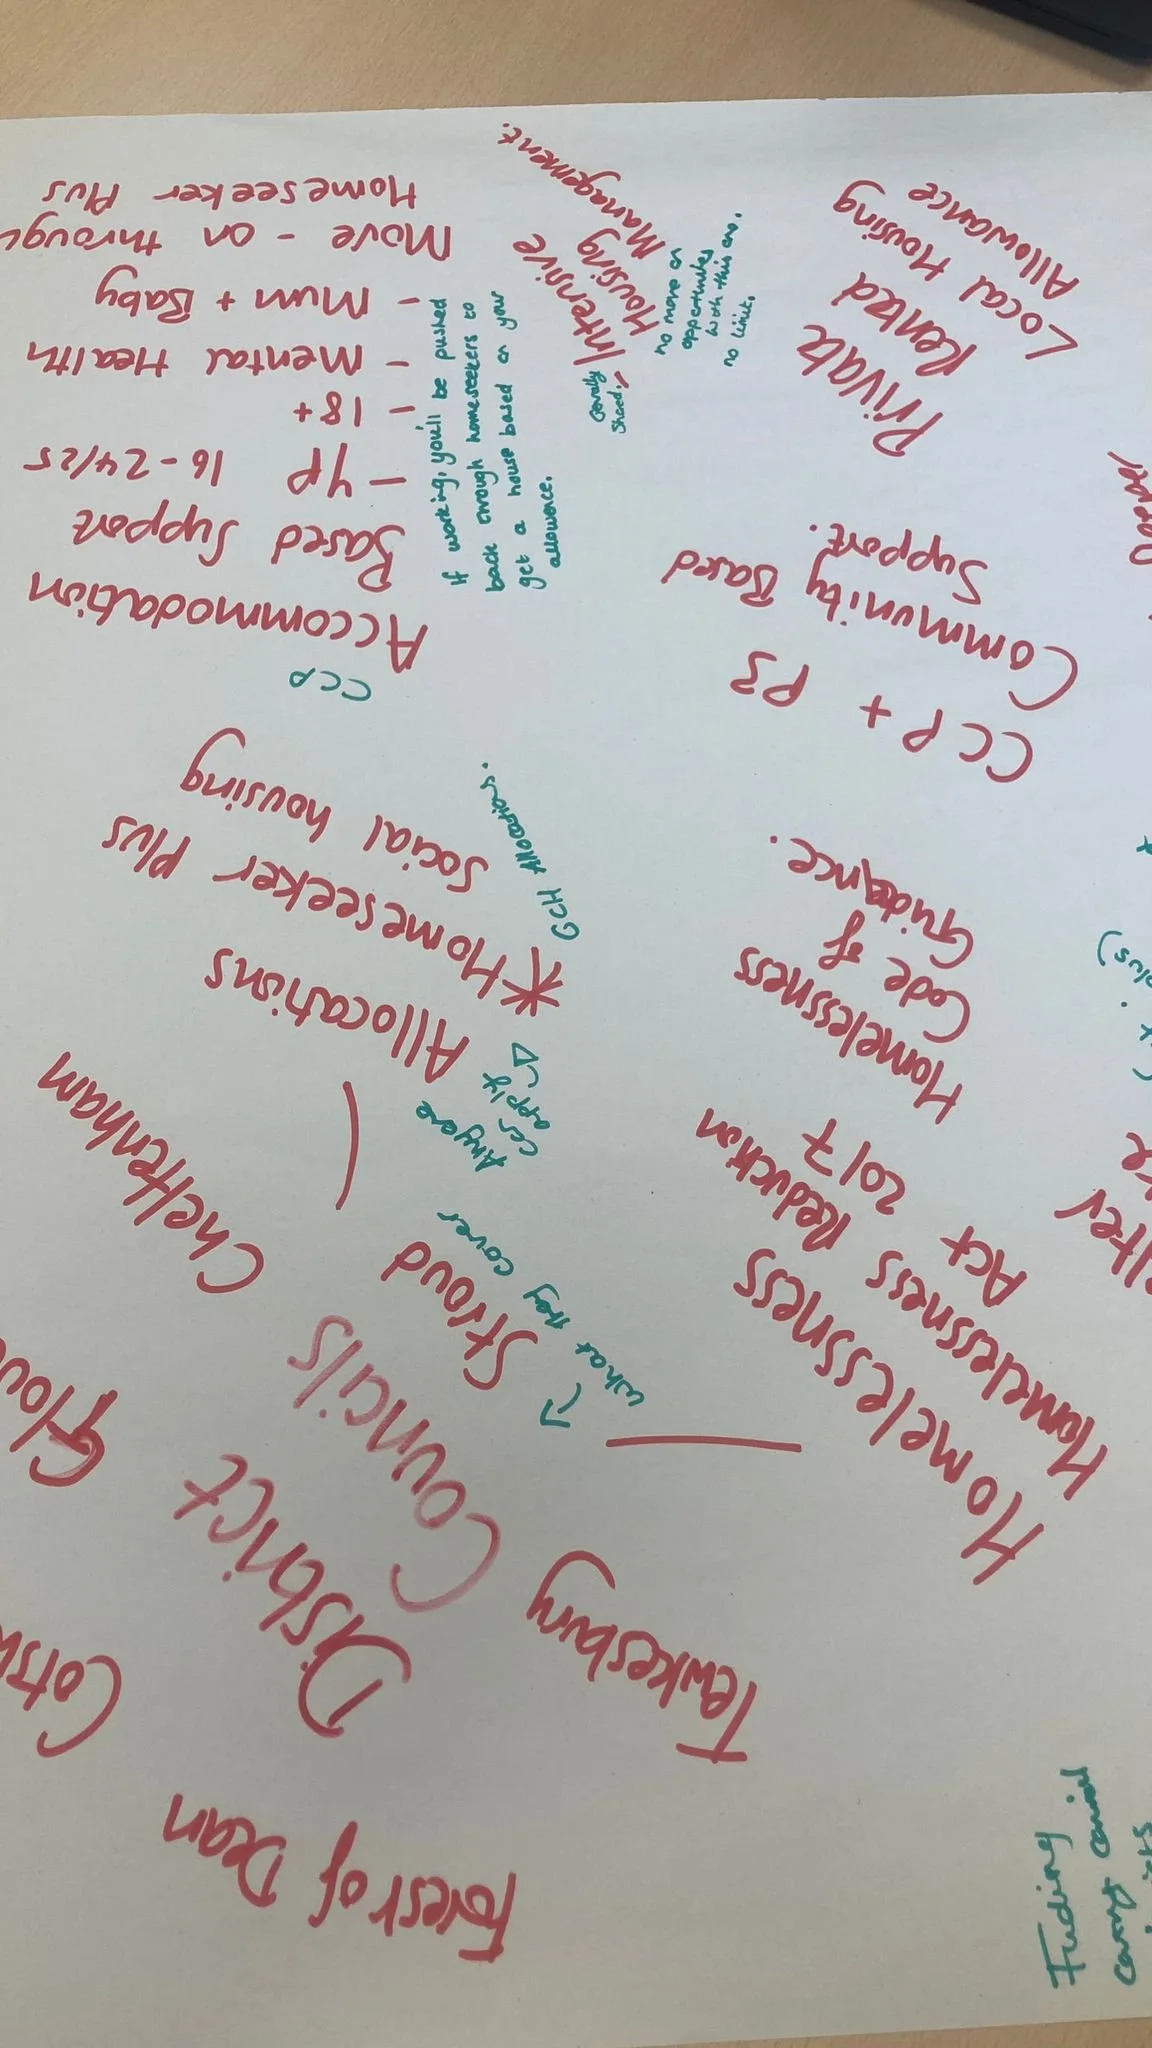 Forest of Dean
Tewkesbury
District
Councils
Stroud
Cheltenham
what they cover
Homelessness
Homelessness Reduction
Act 2017
Homelessness
Code of
Guidance.
Anyone
can
apply
Allocations
* Homeseeker Plus
Social housing
GCH Allocations.
CCP + P3
Community Based
Support.
CCP
Accommodation
Based Support
- YP 16-24/25
- 18+
- Mental Health
- Mum + Baby
Move-on through
Homeseeker Plus
If working, you'll be pushed
back through homeseekers to
get a house based on your
allowance.
Intensive
Housing
Management.
Generally
Shared.
no move on
opportunities
with this one.
no limit.
Private
Rented
Local Housing
Allowance
Funding